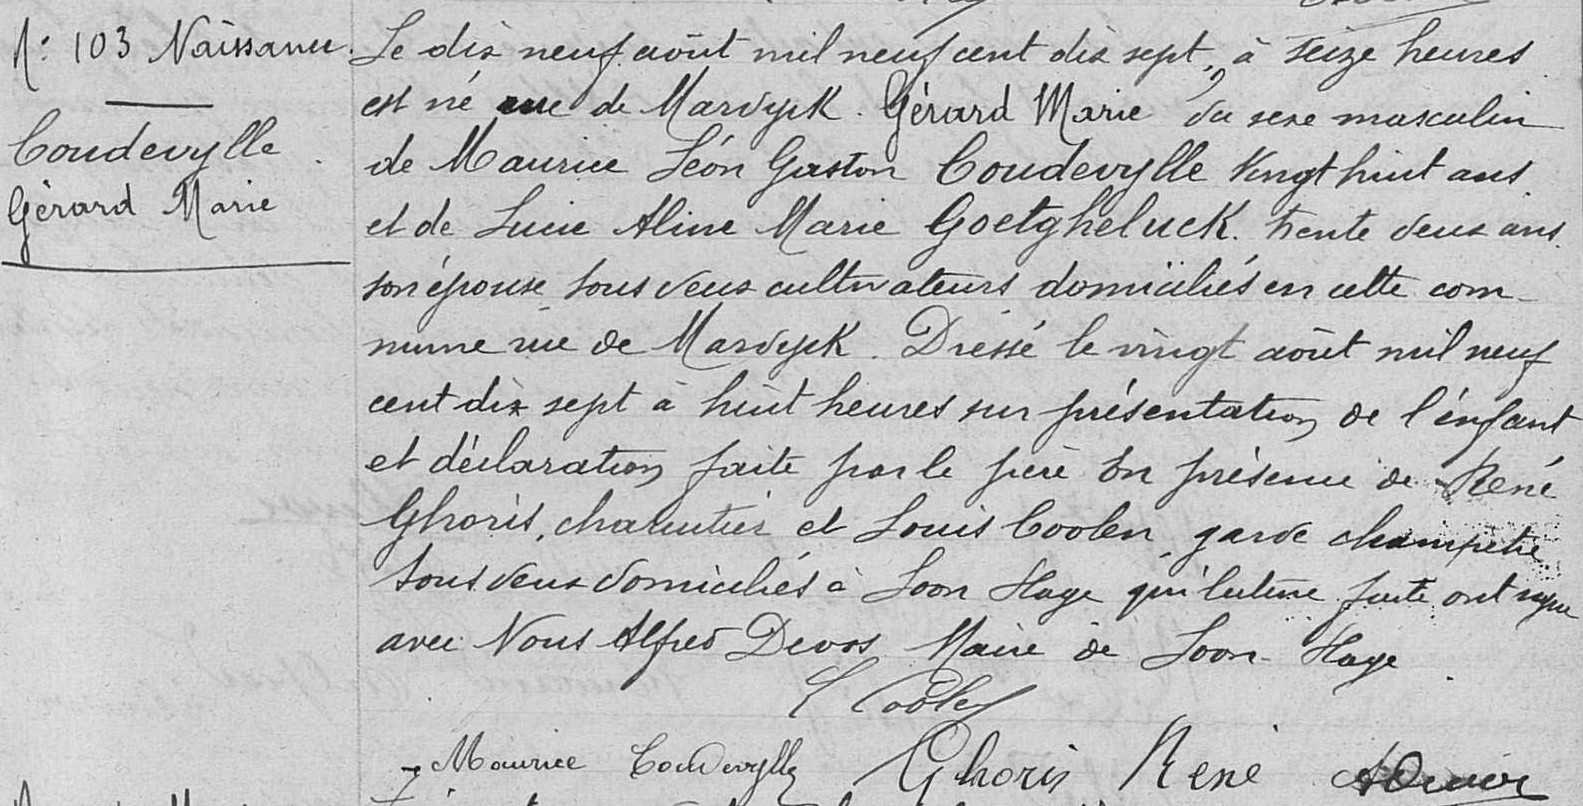 N° 103 Naissance
Coudevylle
Gérard Marie
Le dix neuf août mil neuf cent dix sept, à seize heures
est né rue de Mardyck. Gérard Marie du sexe masculin
de Maurice Léon Gaston Coudevylle vingt huit ans
et de Lucie Aline Marie Goetgheluck trente deux ans
son épouse tous deux cultivateurs domiciliés en cette com-
mune rue de Mardyck. Dressé le vingt août mil neuf
cent dix sept à huit heures sur présentation de l'enfant
et déclaration faite par le père En présence de René
Ghoris, charcutier et Louis Coolen garde champetre
tous deux domiciliés à Loon Plage qui lecture faite ont signé
avec Nous Alfred Devos Maire de Loon-Plage
L Coolen
Maurice Coudevylle Ghoris René